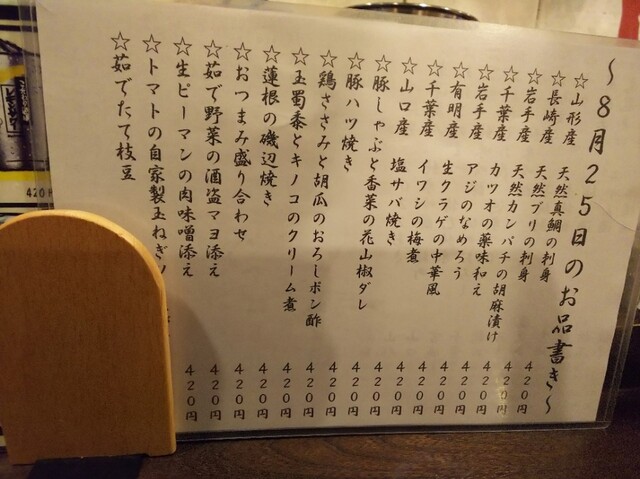 ～８月２５日のお品書き～
☆山形産 天然真鯛の刺身 ４２０円
☆長崎産 天然ブリの刺身 ４２０円
☆岩手産 天然カンパチの胡麻漬け ４２０円
☆千葉産 カツオの薬味和え ４２０円
☆岩手産 アジのなめろう ４２０円
☆有明産 生クラゲの中華風 ４２０円
☆千葉産 イワシの梅煮 ４２０円
☆山口産 塩サバ焼き ４２０円
☆豚しゃぶと香菜の花山椒ダレ ４２０円
☆豚ハツ焼き ４２０円
☆鶏ささみと胡瓜のおろしポン酢 ４２０円
☆玉蜀黍とキノコのクリーム煮 ４２０円
☆蓮根の磯辺焼き ４２０円
☆おつまみ盛り合わせ ４２０円
☆茹で野菜の酒盗マヨ添え ４２０円
☆生ピーマンの肉味噌添え ４２０円
☆トマトの自家製玉ねぎ
☆茹でたて枝豆